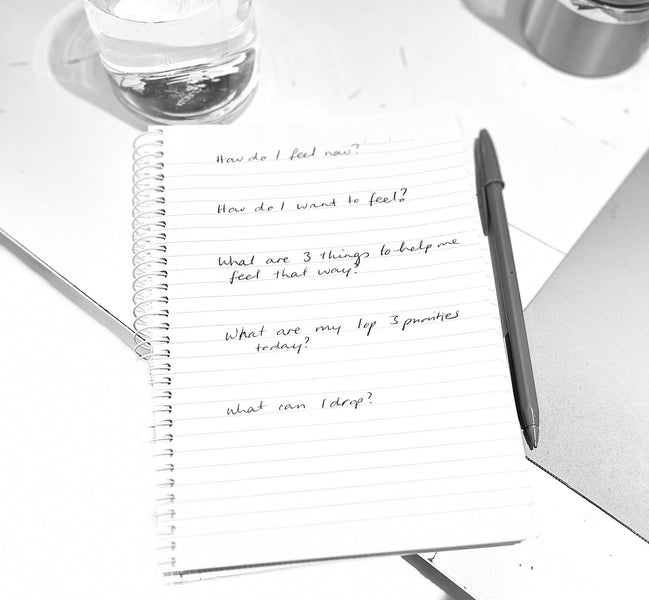 How do I feel now?
How do I want to feel?
What are 3 things to help me
feel that way?
What are my top 3 priorities
today?
What can I drop?